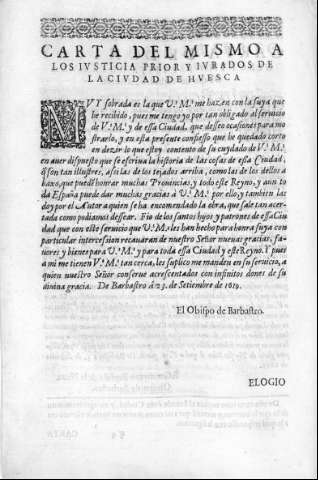 CARTA DEL MISMO A
LOS IVSTICIA PRIOR Y IVRADOS DE
LA CIVDAD DE HVESCA
MVY sobrada es la que V.ª M.ᵈ me haz en con la suya que
he recibido, pues me tengo yo por tan obligado al seruicio
de V.ª M.ᵈ y de essa Ciudad, que deseo ocasiones para mo
strarlo, y en esta presente confiesso que he quedado corto
en dezir lo que estoy contento de su cuydado de V.ª M.ᵈ
en auer dispuesto que se escriua la historia de las cosas de essa Ciudad,
q̃ son tan illustres, assi las de los tejados arriba, como las de los dellos a
baxo, que puedẽ honrar muchas Prouincias, y todo este Reyno, y aun to
da España puede dar muchas gracias à V.ª M.ᵈ por ello; y tambien las
doy por el Autor a quien se ha encomendado la obra, que sale tan acer-
tada como podiamos dessear. Fio de los santos hijos y patrones de essa Ciu
dad que con este seruicio que V.ª M.ᵈ les han hecho para honra suya con
particular intercession recauaran de nuestro Señor nueuas gracias, fa-
uores y bienes para V.ª M.ᵈ y para toda essa Ciudad y este Reyno. Y pues
a mi me tienen V.ª M.ᵈ tan cerca, les suplico me manden en su seruicio, a
quien nuestro Señor conserue acrescentados con infinitos dones de su
diuina gracia. De Barbastro à 23. de Setiembre de 1619.
El Obispo de Barbastro.
ELOGIO